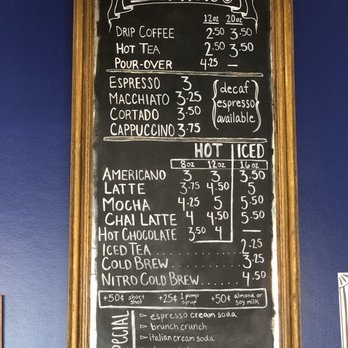 12oz 20oz
DRIP COFFEE 2.50 3.50
HOT TEA 2.50 3.50
POUR-OVER 4.25 —
ESPRESSO 3
MACCHIATO 3.25
CORTADO 3.50
CAPPUCCINO 3.75
{decaf espresso available}
HOT ICED
8oz 12oz 16oz
AMERICANO 3 3 3.50
LATTE 3.75 4.50 5
MOCHA 4.25 5 5.50
CHAI LATTE 4 4.50 5.50
HOT CHOCOLATE 3.50 4 —
ICED TEA 2.25
COLD BREW 3.25
NITRO COLD BREW 4.50
+50¢ short shot +25¢ 1 pump syrup +50¢ almond or soy milk
SPECIAL
espresso cream soda
brunch crunch
italian cream soda